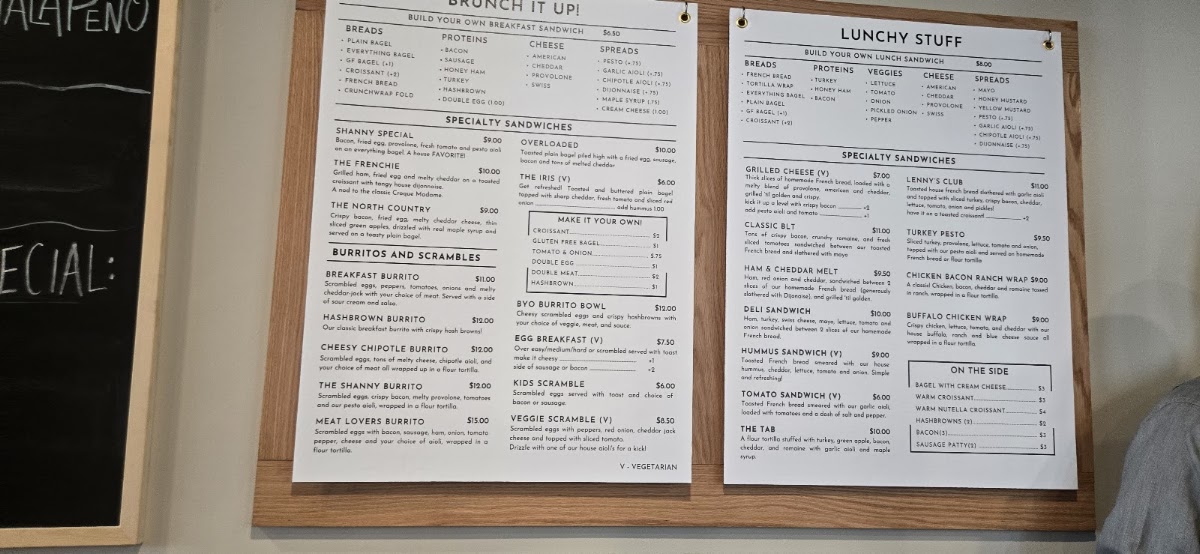 JALAPENO
ECIAL:
BRUNCH IT UP!
BUILD YOUR OWN BREAKFAST SANDWICH $6.50
BREADS
• PLAIN BAGEL
• EVERYTHING BAGEL
• GF BAGEL (+1)
• CROISSANT (+2)
• FRENCH BREAD
• CRUNCHWRAP FOLD
PROTEINS
• BACON
• SAUSAGE
• HONEY HAM
• TURKEY
• HASHBROWN
• DOUBLE EGG (1.00)
CHEESE
• AMERICAN
• CHEDDAR
• PROVOLONE
• SWISS
SPREADS
• PESTO (+.75)
• GARLIC AIOLI (+.75)
• CHIPOTLE AIOLI (+.75)
• DIJONNAISE (+.75)
• MAPLE SYRUP (.75)
• CREAM CHEESE (1.00)
SPECIALTY SANDWICHES
SHANNY SPECIAL $9.00
Bacon, fried egg, provolone, fresh tomato and pesto aioli
on an everything bagel. A house FAVORITE!
THE FRENCHIE $10.00
Grilled ham, fried egg and melty cheddar on a toasted
croissant with tangy house dijonnaise.
A nod to the classic Croque Madame.
THE NORTH COUNTRY $9.00
Crispy bacon, fried egg, melty cheddar cheese, thin
sliced green apples, drizzled with real maple syrup and
served on a toasty plain bagel.
BURRITOS AND SCRAMBLES
BREAKFAST BURRITO $11.00
Scrambled eggs, peppers, tomatoes, onions and melty
cheddar-jack with your choice of meat. Served with a side
of sour cream and salsa.
HASHBROWN BURRITO $12.00
Our classic breakfast burrito with crispy hash browns!
CHEESY CHIPOTLE BURRITO $12.00
Scrambled eggs, tons of melty cheese, chipotle aioli, and
your choice of meat all wrapped up in a flour tortilla.
THE SHANNY BURRITO $12.00
Scrambled eggs, crispy bacon, melty provolone, tomatoes
and our pesto aioli, wrapped in a flour tortilla.
MEAT LOVERS BURRITO $15.00
Scrambled eggs with bacon, sausage, ham, onion, tomato
pepper, cheese and your choice of aioli, wrapped in a
flour tortilla.
OVERLOADED $10.00
Toasted plain bagel piled high with a fried egg, sausage,
bacon and tons of melted cheddar
THE IRIS (V) $6.00
Get refreshed! Toasted and buttered plain bagel
topped with sharp cheddar, fresh tomato and sliced red
onion add hummus 1.00
MAKE IT YOUR OWN!
CROISSANT $2
GLUTEN FREE BAGEL $1
TOMATO & ONION $.75
DOUBLE EGG $1
DOUBLE MEAT $2
HASHBROWN $1
BYO BURRITO BOWL $12.00
Cheesy scrambled eggs and crispy hashbrowns with
your choice of veggie, meat, and sauce.
EGG BREAKFAST (V) $7.50
Over easy/medium/hard or scrambled served with toast
make it cheesy +1
side of sausage or bacon +2
KIDS SCRAMBLE $6.00
Scrambled eggs served with toast and choice of
bacon or sausage.
VEGGIE SCRAMBLE (V) $8.50
Scrambled eggs with peppers, red onion, cheddar jack
cheese and topped with sliced tomato.
Drizzle with one of our house aioli's for a kick!
V - VEGETARIAN
LUNCHY STUFF
BUILD YOUR OWN LUNCH SANDWICH $8.00
BREADS
• FRENCH BREAD
• TORTILLA WRAP
• EVERYTHING BAGEL
• PLAIN BAGEL
• GF BAGEL (+1)
• CROISSANT (+2)
PROTEINS
• TURKEY
• HONEY HAM
• BACON
VEGGIES
• LETTUCE
• TOMATO
• ONION
• PICKLED ONION
• PEPPER
CHEESE
• AMERICAN
• CHEDDAR
• PROVOLONE
• SWISS
SPREADS
• MAYO
• HONEY MUSTARD
• YELLOW MUSTARD
• PESTO (+.75)
• GARLIC AIOLI (+.75)
• CHIPOTLE AIOLI (+.75)
• DIJONNAISE (+.75)
SPECIALTY SANDWICHES
GRILLED CHEESE (V) $7.00
Thick slices of homemade French bread, loaded with a
melty blend of provolone, american and cheddar,
grilled 'til golden and crispy.
kick it up a level with crispy bacon +2
add pesto aioli and tomato +1
CLASSIC BLT $11.00
Tons of crispy bacon, crunchy romaine, and fresh
sliced tomatoes sandwiched between our toasted
French bread and slathered with mayo
HAM & CHEDDAR MELT $9.50
Ham, red onion and cheddar, sandwiched between 2
slices of our homemade French bread (generously
slathered with Dijonaise), and grilled 'til golden.
DELI SANDWICH $10.00
Ham, turkey, swiss cheese, mayo, lettuce, tomato and
onion sandwiched between 2 slices of our homemade
French bread.
HUMMUS SANDWICH (V) $9.00
Toasted French bread smeared with our house
hummus, cheddar, lettuce, tomato and onion. Simple
and refreshing!
TOMATO SANDWICH (V) $6.00
Toasted French bread smeared with our garlic aioli,
loaded with tomatoes and a dash of salt and pepper.
THE TAB $10.00
A flour tortilla stuffed with turkey, green apple, bacon,
cheddar, and romaine with garlic aioli and maple
syrup.
LENNY'S CLUB $11.00
Toasted house french bread slathered with garlic aioli
and topped with sliced turkey, crispy bacon, cheddar,
lettuce, tomato, onion and pickles!
have it on a toasted croissant +2
TURKEY PESTO $9.50
Sliced turkey, provolone, lettuce, tomato and onion,
topped with our pesto aioli and served on homemade
French bread or flour tortilla
CHICKEN BACON RANCH WRAP $9.00
A classic! Chicken, bacon, cheddar and romaine tossed
in ranch, wrapped in a flour tortilla.
BUFFALO CHICKEN WRAP $9.00
Crispy chicken, lettuce, tomato, and cheddar with our
house buffalo, ranch and blue cheese sauce all
wrapped in a flour tortilla.
ON THE SIDE
BAGEL WITH CREAM CHEESE $3
WARM CROISSANT $3
WARM NUTELLA CROISSANT $4
HASHBROWNS (2) $2
BACON(3) $3
SAUSAGE PATTY(2) $3